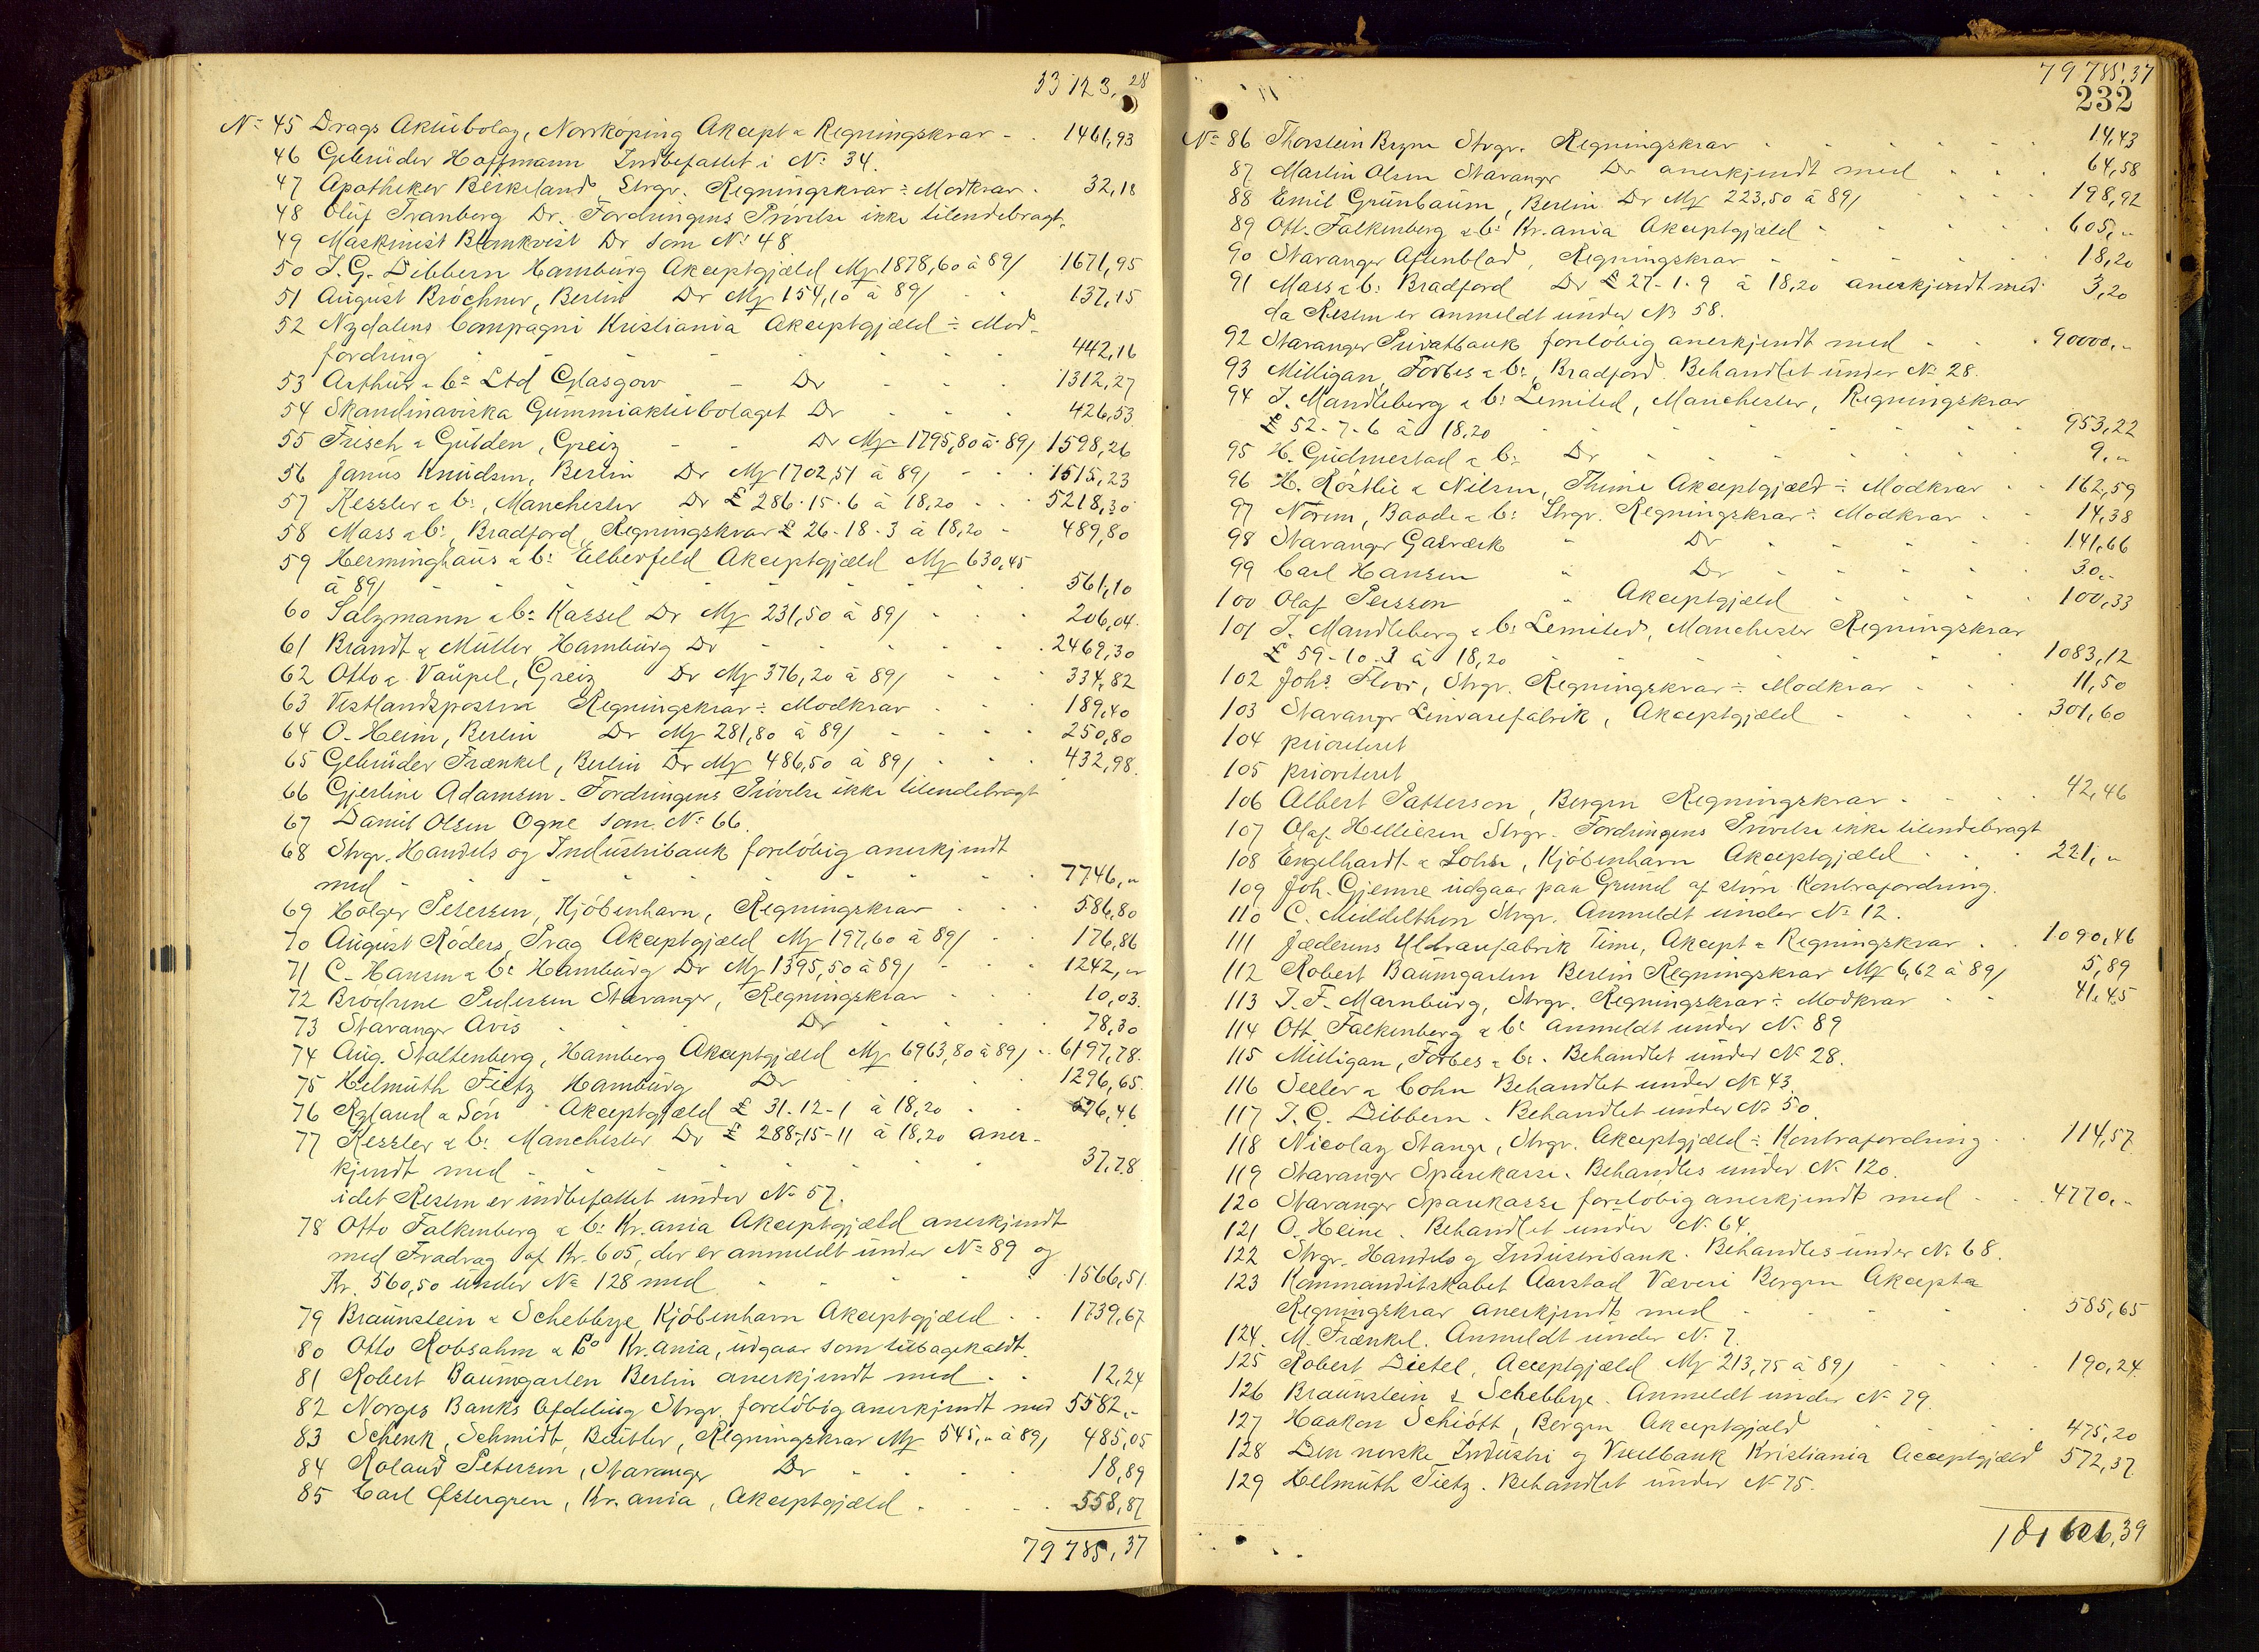 33 123,28
No 45 Drags Aktiebolag, Norrköping Akcept & Regningskrav - . 1461,93
46 Gebrüder Hoffmann Indbefattet i No 34.
47 Apotheker Birkeland, Strgr. Regningskrav ÷ Modkrav . 32,18
48 Oluf Tranberg Do. Fordringens Prövelse ikke tilendebragt.
49 Maskinist Blomkvist Do som No 48
50 J. G. Dibbern Hamburg Akceptgjæld Mk 1878,60 à 89/ 1671,95
51 August Bröchner, Berlin Do Mk 154,10 à 89/ 137,15
52 Nydalens Compagni Kristiania Akceptgjæld ÷ Mod-
fordring 442,16
53 Arthur & Co Ltd Glasgow - Do 1312,27
54 Skandinaviska Gummiaktiebolaget Do 426,53
55 Frisch & Gülden, Greiz - - Do Mk 1795,80 à 89/ 1598,26
56 Janus Knudsen, Berlin Do Mk 1702,51 à 89/ 1515,23
57 Kessler & Co, Manchester Do £ 286-15-6 à 18,20 5218,30
58 Mass & Co, Bradford, Regningskrav £ 26-18-3 à 18,20 - 489,80
59 Herminghaus & Co Elberfeld Akceptgjæld Mk 630,45
à 89/ 561,10
60 Salzmann & Co Kassel Do Mk 231,50 à 89/ 206,04
61 Brandt & Müller, Hamburg Do 2469,30
62 Otto & Vaupel, Greiz Do Mk 376,20 à 89/ 334,82
63 Vestlandsposten Regningskrav ÷ Modkrav 189,40
64 O. Heim, Berlin Do Mk 281,80 à 89/ 250,80
65 Gebrüder Frænkel, Berlin Do Mk 486,50 à 89/ 432,98
66 Gjertine Adamsen - Fordringens Prövelse ikke tilendebragt
67 Daniel Olsen Ogne som No 66.
68 Strgr. Handels og Industribank foreløbig anerkjendt
med 7746,"
69 Holger Petersen, Kjöbenhavn, Regningskrav 586,80
70 August Röders, Prag Akceptgjæld Mk 197,60 à 89/ 176,86
71 C. Hansen & Co Hamburg Do Mk 1395,50 à 89/ 1242,"
72 Brödrene Pedersen Stavanger, Regningskrav 10,03
73 Stavanger Avis Do 78,30
74 Aug. Stoltenberg, Hamberg Akceptgjæld Mk 6963,80 à 89/ 6197,78
75 Helmuth Tietz Hamburg Do 1296,65
76 Ryland & Sön Akceptgjæld £ 31-12-1 à 18,20 576,46
77 Kessler & Co Manchester Do £ 288-15-11 à 18,20 aner-
kjendt med 37,28
idet Resten er indbefattet under No 57.
78 Otto Falkenberg & Co Kr.ania Akceptgjæld anerkjendt
med Fradrag af Kr. 605, der er anmeldt under No 89 og
Kr. 560,50 under No 128 med 1566,51
79 Braunstein & Schebbye Kjöbenhavn Akceptgjæld 1739,67
80 Otto Robsahm & Co Kr.ania, udgaar som tilbagekaldt.
81 Robert Baumgarten Berlin anerkjendt med 12,24
82 Norges Banks Afdeling Strgr. foreløbig anerkjendt med 5582,-
83 Schenk, Schmidt, Beutler, Regningskrav Mk 545," à 89/ 485,05
84 Roland Petersen, Stavanger Do 18,89
85 Carl Østergren, Kr.ania, Akceptgjæld 558,87
79 785,37
79 785,37
232
No 86 Thorstein Bryne Strgr. Regningskrav 14,43
87 Martin Olsen Stavanger Do anerkjendt med 64,58
88 Emil Grünbaum, Berlin Do Mk 223,50 à 89/ 198,92
89 Ott. Falkenberg & Co Kr.ania Akceptgjæld 605,"
90 Stavanger Aftenblad, Regningskrav 18,20
91 Mass & Co Bradford Do £ 27-1-9 à 18,20 anerkjendt med 3,20
da Resten er anmeldt under No 58.
92 Stavanger Privatbank foreløbig anerkjendt med 90000,-
93 Milligan, Forbes & Co, Bradford. Behandlet under No 28.
94 J. Mandleberg & Co Lemited, Manchester, Regningskrav
£ 52-7-6 à 18,20 953,22
95 H. Gudmestad & Co Do 9,"
96 H. Röstlie & Nilsen, Thime Akceptgjæld ÷ Modkrav 162,59
97 Norem, Baade & Co Strgr. Regningskrav ÷ Modkrav 14,38
98 Stavanger Gasværk " Do 141,66
99 Carl Hansen " Do 30,-
100 Olaf Persson " Akceptgjæld 100,33
101 J. Mandleberg & Co Lemited, Manchester Regningskrav
£ 59-10-3 à 18,20 1083,12
102 Johs Floor, Strgr. Regningskrav ÷ Modkrav 11,50
103 Stavangr Linvarefabrik, Akceptgjæld 301,60
104 prioriteret
105 prioriteret
106 Albert Patterson, Bergen Regningskrav 42,46
107 Olaf Helliesen Strgr. Fordringens Prövelse ikke tilendebragt
108 Engelhardt & Lohse, Kjöbenhavn Akceptgjæld 221,"
109 Joh. Gjemre udgaar paa Grund af större Kontrafordring.
110 C. Middelthon Strgr. Anmeldt under No 12.
111 Jæderens Uldvarefabrik Time, Akcept & Regningskrav 1090,46
112 Robert Baumgarten Berlin Regningskrav Mk 6,62 à 89/ 5,89
113 J. F. Marnburg, Strgr. Regningskrav ÷ Modkrav 41,45
114 Ott. Falkenberg & Co anmeldt under No 89
115 Milligan, Forbes & Co. Behandlet under No 28.
116 Seeler & Cohn Behandlet under No 43.
117 J. G. Dibbern. Behandlet under No 50.
118 Nicolay Stange, Strgr. Akceptgjæld ÷ Kontrafordring 114,57
119 Stavanger Sparekasse. Behandles under No 120.
120 Stavanger Sparekasse foreløbig anerkjendt med 4770,-
121 O. Heine. Behandlet under No 64.
122 Strgr. Handels og Industribank. Behandles under No 68.
123 Kommanditskabet Aarstad Væveri Bergen Akcept &
Regningskrav anerkjendt med 585,65
124. M. Frænkel. Anmeldt under No 7.
125 Robert Dietel, Acceptgjæld Mk 213,75 à 89/ 190,24
126 Braunstein & Schebbye. Anmeldt under No 79
127 Haakon Schiött, Bergen Akceptgjæld 475,20
128 Den norske Industri og Vexelbank Kristiania Acceptgjæld 572,37
129 Helmuth Tietz. Behandlet under No 75.
181 606,39